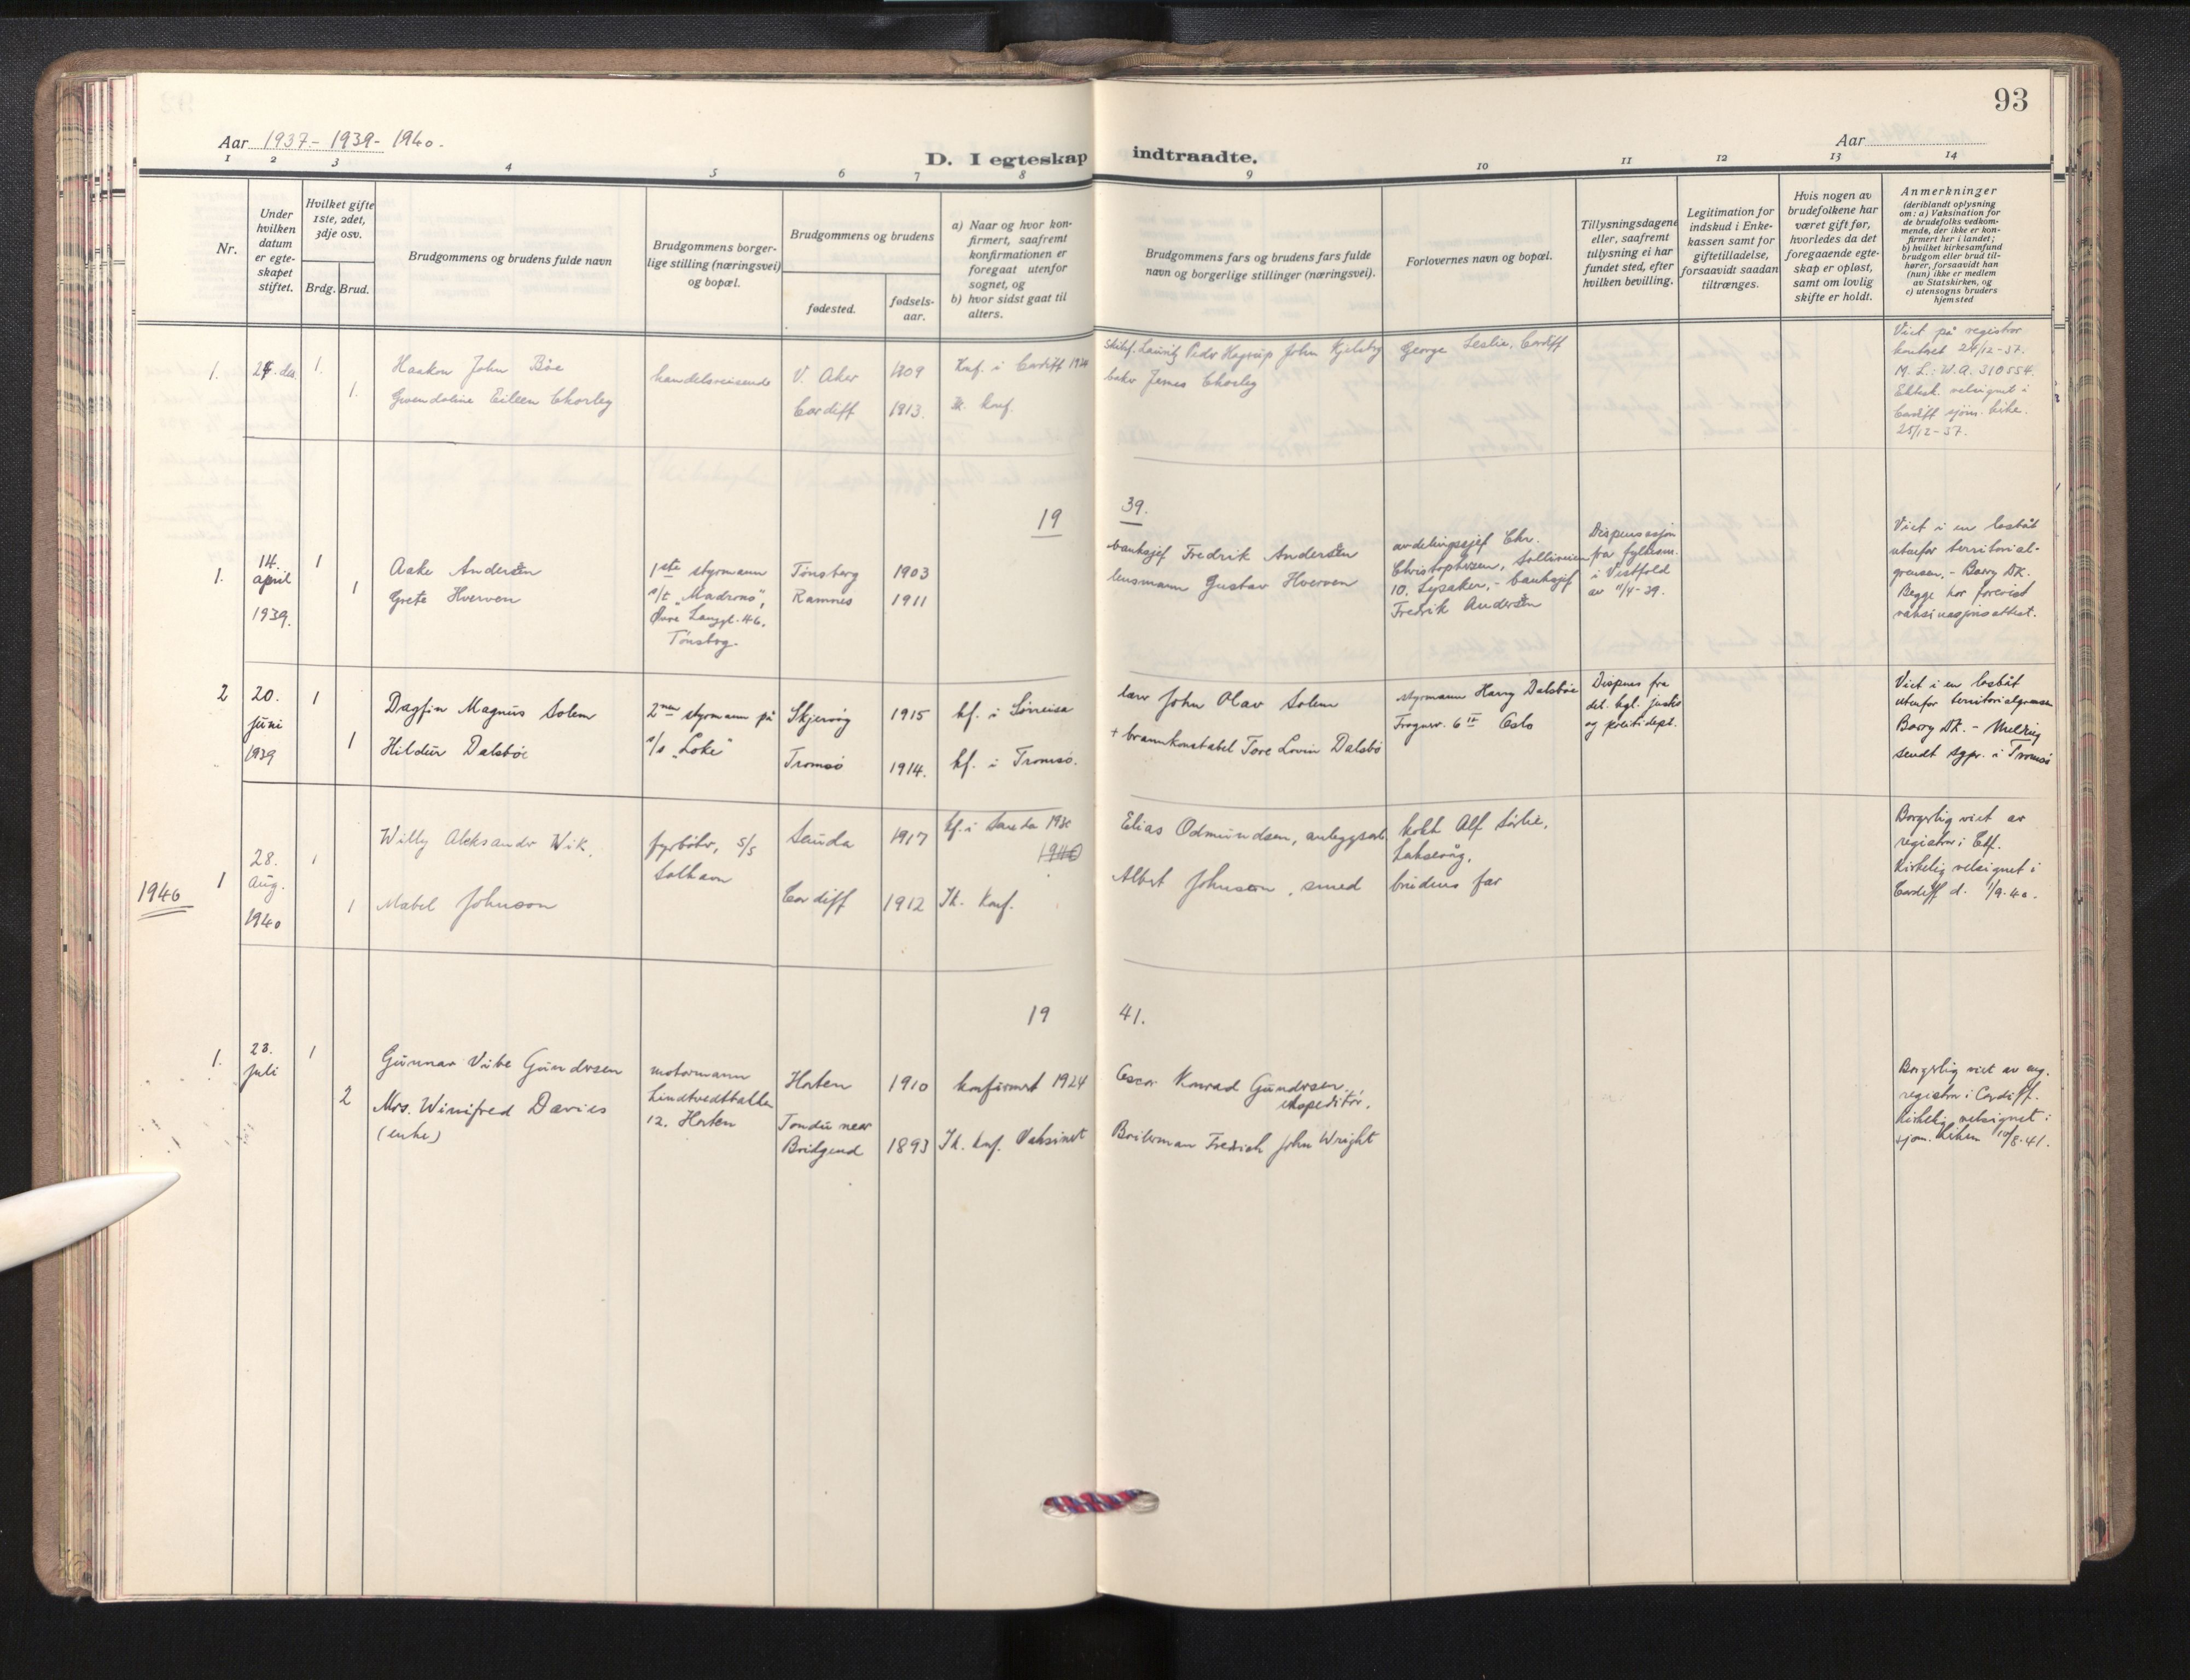 93
Aar 1937.- 1939- 1940.
Aar
D. I egteskap indtraadte.
1 2 3 4 5 6 7 8 9 10 11 12 13 14
Nr.
Under
hvilken
datum
er egte-
skapet
stiftet.
Hvilket gifte
1ste, 2det,
3dje osv.
Brdg.
Brud.
Brudgommens og brudens fulde navn
Brudgommens borger-
lige stilling (næringsvei)
og bopæl.
Brudgommens og brudens
fødested.
fødsels-
aar.
a) Naar og hvor kon-
firmert, saafremt
konfirmationen er
foregaat utenfor
sognet, og
b) hvor sidst gaat til
alters.
Brudgommens fars og brudens fars fulde
navn og borgerlige stillinger (næringsvei).
Forlovernes navn og bopæl.
Tillysningsdagene
eller, saafremt
tillysning ei har
fundet sted, efter
hvilken bevilling.
Legitimation for
indskud i Enke-
kassen samt for
giftetilladelse,
forsaavidt saadan
tiltrænges.
Hvis nogen av
brudefolkene har
været gift før,
hvorledes da det
foregaaende egte-
skap er opløst,
samt om lovlig
skifte er holdt.
Anmerkninger
(deriblandt oplysning
om: a) Vaksination for
de brudefolks vedkom-
mende, der ikke er kon-
firmert her i landet;
b) hvilket kirkesamfund
brudgom eller brud til-
hører, forsaavidt han
(hun) ikke er medlem
av Statskirken, og
c) utensogns bruders
hjemsted
1.
24. des.
1.
1.
Haakon John Böe
Gwendoline Eileen Chorley
handelsreisende
V. Aker
Cardiff
1909
1913.
Knf. i Cardiff 1924
Ik. konf.
Skibsf. Lauritz Peder Hagrup John Kjelsby
baker James Chorley
George Leslie, Cardiff
Viet på registrar
kontoret 24/12-37.
M. L: W. A. 310554.
Ektesk. velsignet i
Cardiff sjøm. kirke.
25/12-37.
19 39.
1.
14.
april
1939.
1
1
Aake Andersen
Grete Hverven
1ste styrmann
s/t "Madrono",
Øvre Langgt. 46.
Tönsberg.
Tönsberg
Ramnes
1903
1911
banksjef Fredrik Andersen
lensmann Gustav Hverven
avdelingssjef Chr.
Christophersen, Solliveien
10, Lysaker, - banksjef
Fredrik Andersen
Dispensasjon
fra fylkesm.
i Vestfold
av 11/4-39.
Viet i en losbåt
utenfor territorial-
grensen, - Barry Dk.
Begge har forevist
vaksinasjonsattest.
2
20.
juni
1939
1
1
Dagfin Magnus Solem
Hildur Dalsböe
2nen styrmann på
s/s "Loke"
Skjervöy
Tromsö
1915
1914.
kf. i Sörreisa
kf. i Tromsö.
lærer John Olav Solem
+ brannkonstabel Tore Lovin Dalsbö
styrmann Harry Dalsböe
Frognerv. 6 IV Oslo
Dispens fra
det kgl. justis
og politidept.
Viet i en losbåt
utenfor territorialgrensen
Barry Dk. - Melding
sendt sgpr. i Tromsö
1940
1
28.
Aug.
1940
1
1
Willy Aleksander Wik.
Mabel Johnson
fyrböter, S/S
Solhavn
Sauda
Cardiff
1917
1912
kf. i Sauda 193
1940
Ik. Konf.
Elias Odmundsen, anleggsarb.
Albert Johnson, smed
kokk Alf Sörlie,
Laksevåg,
brudens far
Borgerlig viet av
registrar i Cdf.
Kirkelig velsignet i
Cardiff d. 1/9-40.
19 41.
1.
23.
juli
1
2
Gunnar Vibe Gundersen
Mrs. Winifred Davies
(enke)
motormann
Lindtvedtbakken
12. Horten
Horten
Tondu near
Bridgend
1910
1893
konfirmert 1924
Ik. knf. Vaksinert
Oscar Konrad Gundersen,
ekspeditör.
Boilerman Fredrich John Wright
Borgerlig viet av eng.
registrar i Cardiff.
Kirkelig velsignet i
sjøm. kirken 10/8-41.